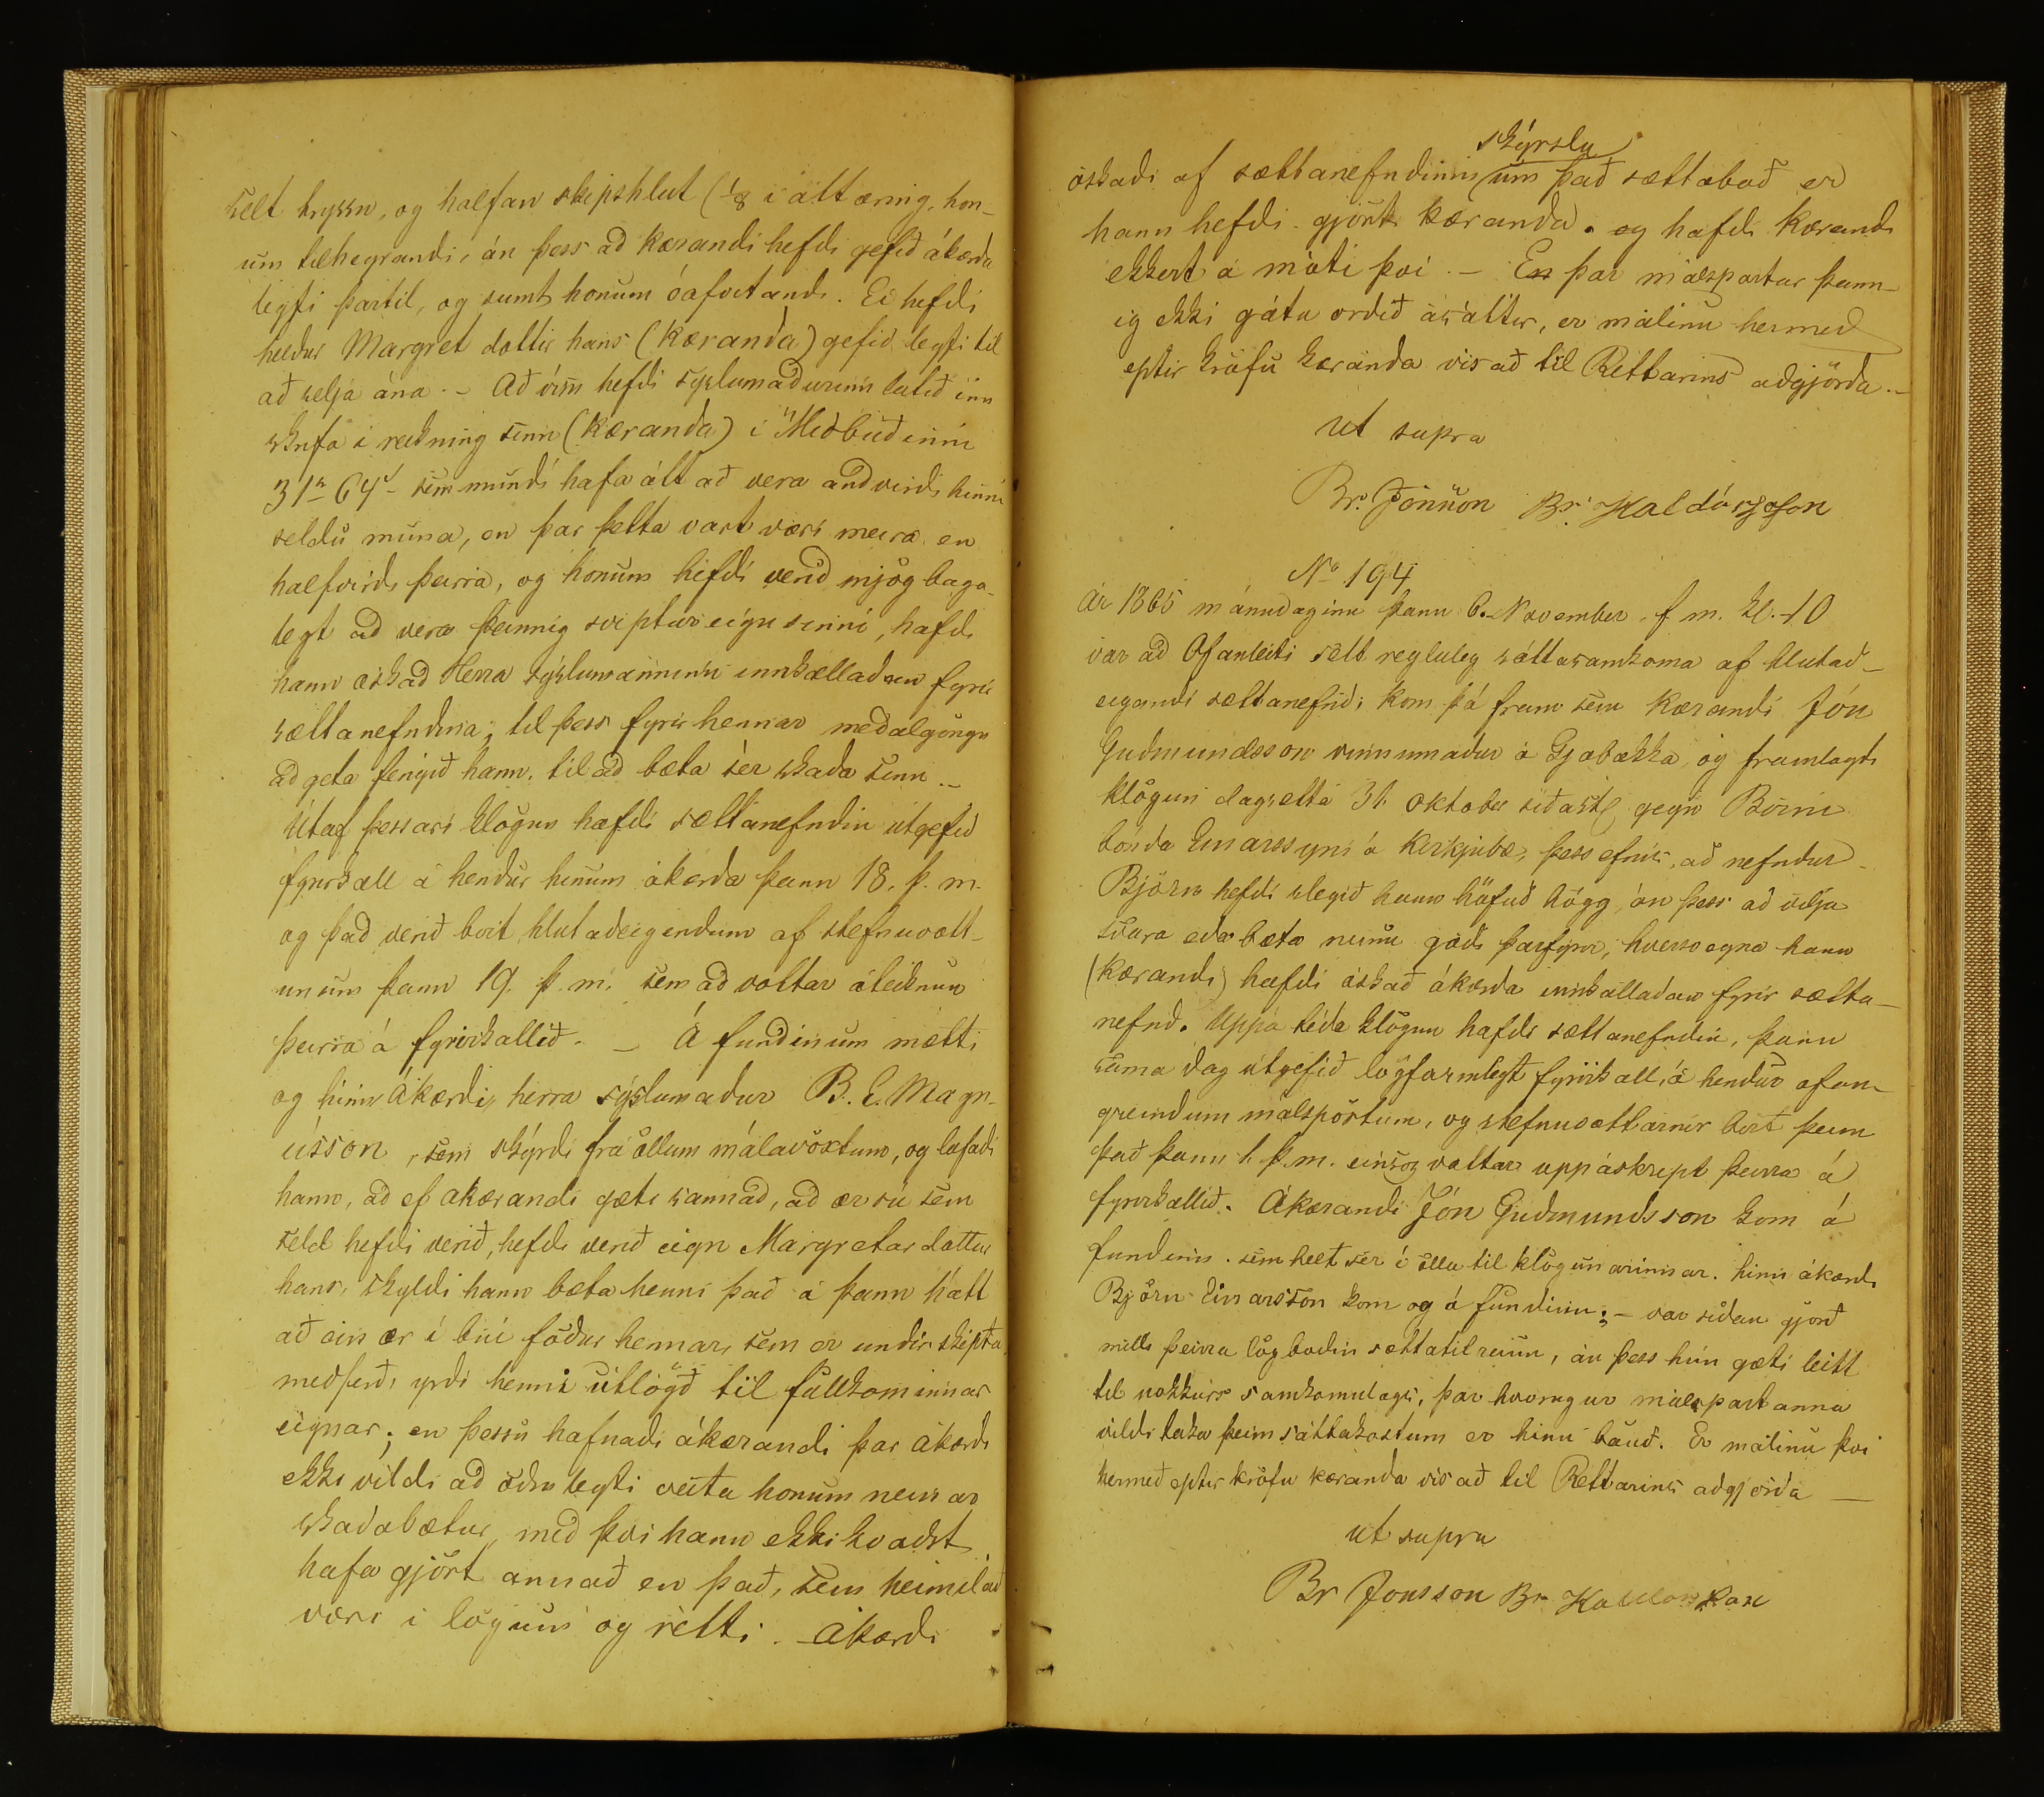 selt hryssu, og halfan skipshlut (1/8 í áttæring, hon-
um tilheyrandi, án þess að kærandi hefdi gefið ákærda
leyfi þartil, og sumt honum óafvitandi. Ei hefdi
heldur Margret dottir hans (kæranda) gefið leyfi til
að selja ána. - Að vísu hefdi syslumaðurinn latið inn
skrifa i reikning sinn (kæranda) í Miðbúðinni
31 64 sem mundi hafa átt að vera andvirdi hinna
seldu muna, en þar þetta vart væri meira en
halfvirdi þeirra, og honum hefdi verið mjög baga-
legt að vera þannig sviptur eign sinni, hafdi
hann æskað Herra sýslumanninn innkallaðan fyrir
sættanefndina, til þess fyrir hennar meðalgöngu
að geta fengið hann til að bæta sér skaða sinn. -
Útaf þessari klögun hafdi sættanefndin útgefið
fyrirkall á hendur hinum ákærda þann 18. þ. m.
og það verið birt hlutaðeigendum af stefnuvott-
unum þann 19. þ. m. sem að vottar áteiknun
þeirra á fyrirkallið. - Á fundinum mætti
og hinn Ákærdi, herra sýslumadur B. E. Magn-
ússon, sem skýrdi frá öllum málavöxtum, og lofadi
hann, að ef akærandi gæti sannað, að ær sú sem
seld hefdi verið, hefdi verið eign Margretar dottur
hans, skyldi hann bæta henni það á þann hátt
að ein ær í búi föður hennar, sem er undir skipta
medferð, yrdi henni útlögð til fullkominnar
eignar; en þessu hafnadi ákærandi þar ákærdi
ekki vildi að öðru leyti veita honum neinar
skaðabætur, með því hann ekki kvaðst
hafa gjört annað en það, sem heimilað
væri i lögum og rétti. - Ákærdi
skýrslu
óskaði af sættanefndinni um það sættaboð er
hann hefdi gjört kæranda. og hafdi kærandi
ekkert á móti því. - En þar málspartar þann-
ig ekki gátu ordið ásáttir, er málinu hermeð
eptir kröfu kæranda vísað til Réttarins aðgjörda. -
ut supra
Br. Jónsson Br. Haldórsson
No 194
Ár 1865 mánudaginn þann 6. November f. m. kl. 10
var að Ofanleiti sett regluleg sáttasamkoma af hlutað-
eigandi sættanefnd; kom þá fram sem kærandi Jón
Guðmundsson vinnumadur á Gjabakka og framlagdi
klögun dagsetta 31. oktober síðastl gegn Birni
bónda Einarssyni á Kirkjubæ, þess efnis, að nefndur
Björn hefdi slegið hann höfuð högg, án þess að vilja
svara eða bæta neinu góðu þarfyrir, hversvegna hann
(kærandi) hafdi æskað ákærda innkalladan fyrir sætta-
nefnd. Uppá téda klögun hafdi sættanefndin, þann
sama dag útgefið lögformlegt fyrirkall, á hendur ofan-
greindum málspörtum, og stefnuvottarnir birt þeim
það þann 1. þ. m. einsog vottar uppáskript þeirra á
fyrirkallið. Ákærandi Jón Guðmundsson kom á
fundinn. sem helt sér í öllu til klögunarinnar. hinn ákærdi
Björn Einarsson kom og á fundinn; - var síðan gjörð
milli þeirra lögboðin sættatilraun, án þess hún gæti leitt
til nokkurs samkomulags, þar hvorugur málspartanna
vildi taka þeim sáttakostum er hinn bauð. Er málinu því
hermeð eptir kröfu kæranda vísað til Réttarins aðgjörda —
ut supra
Br Jonsson Br Haldorsson